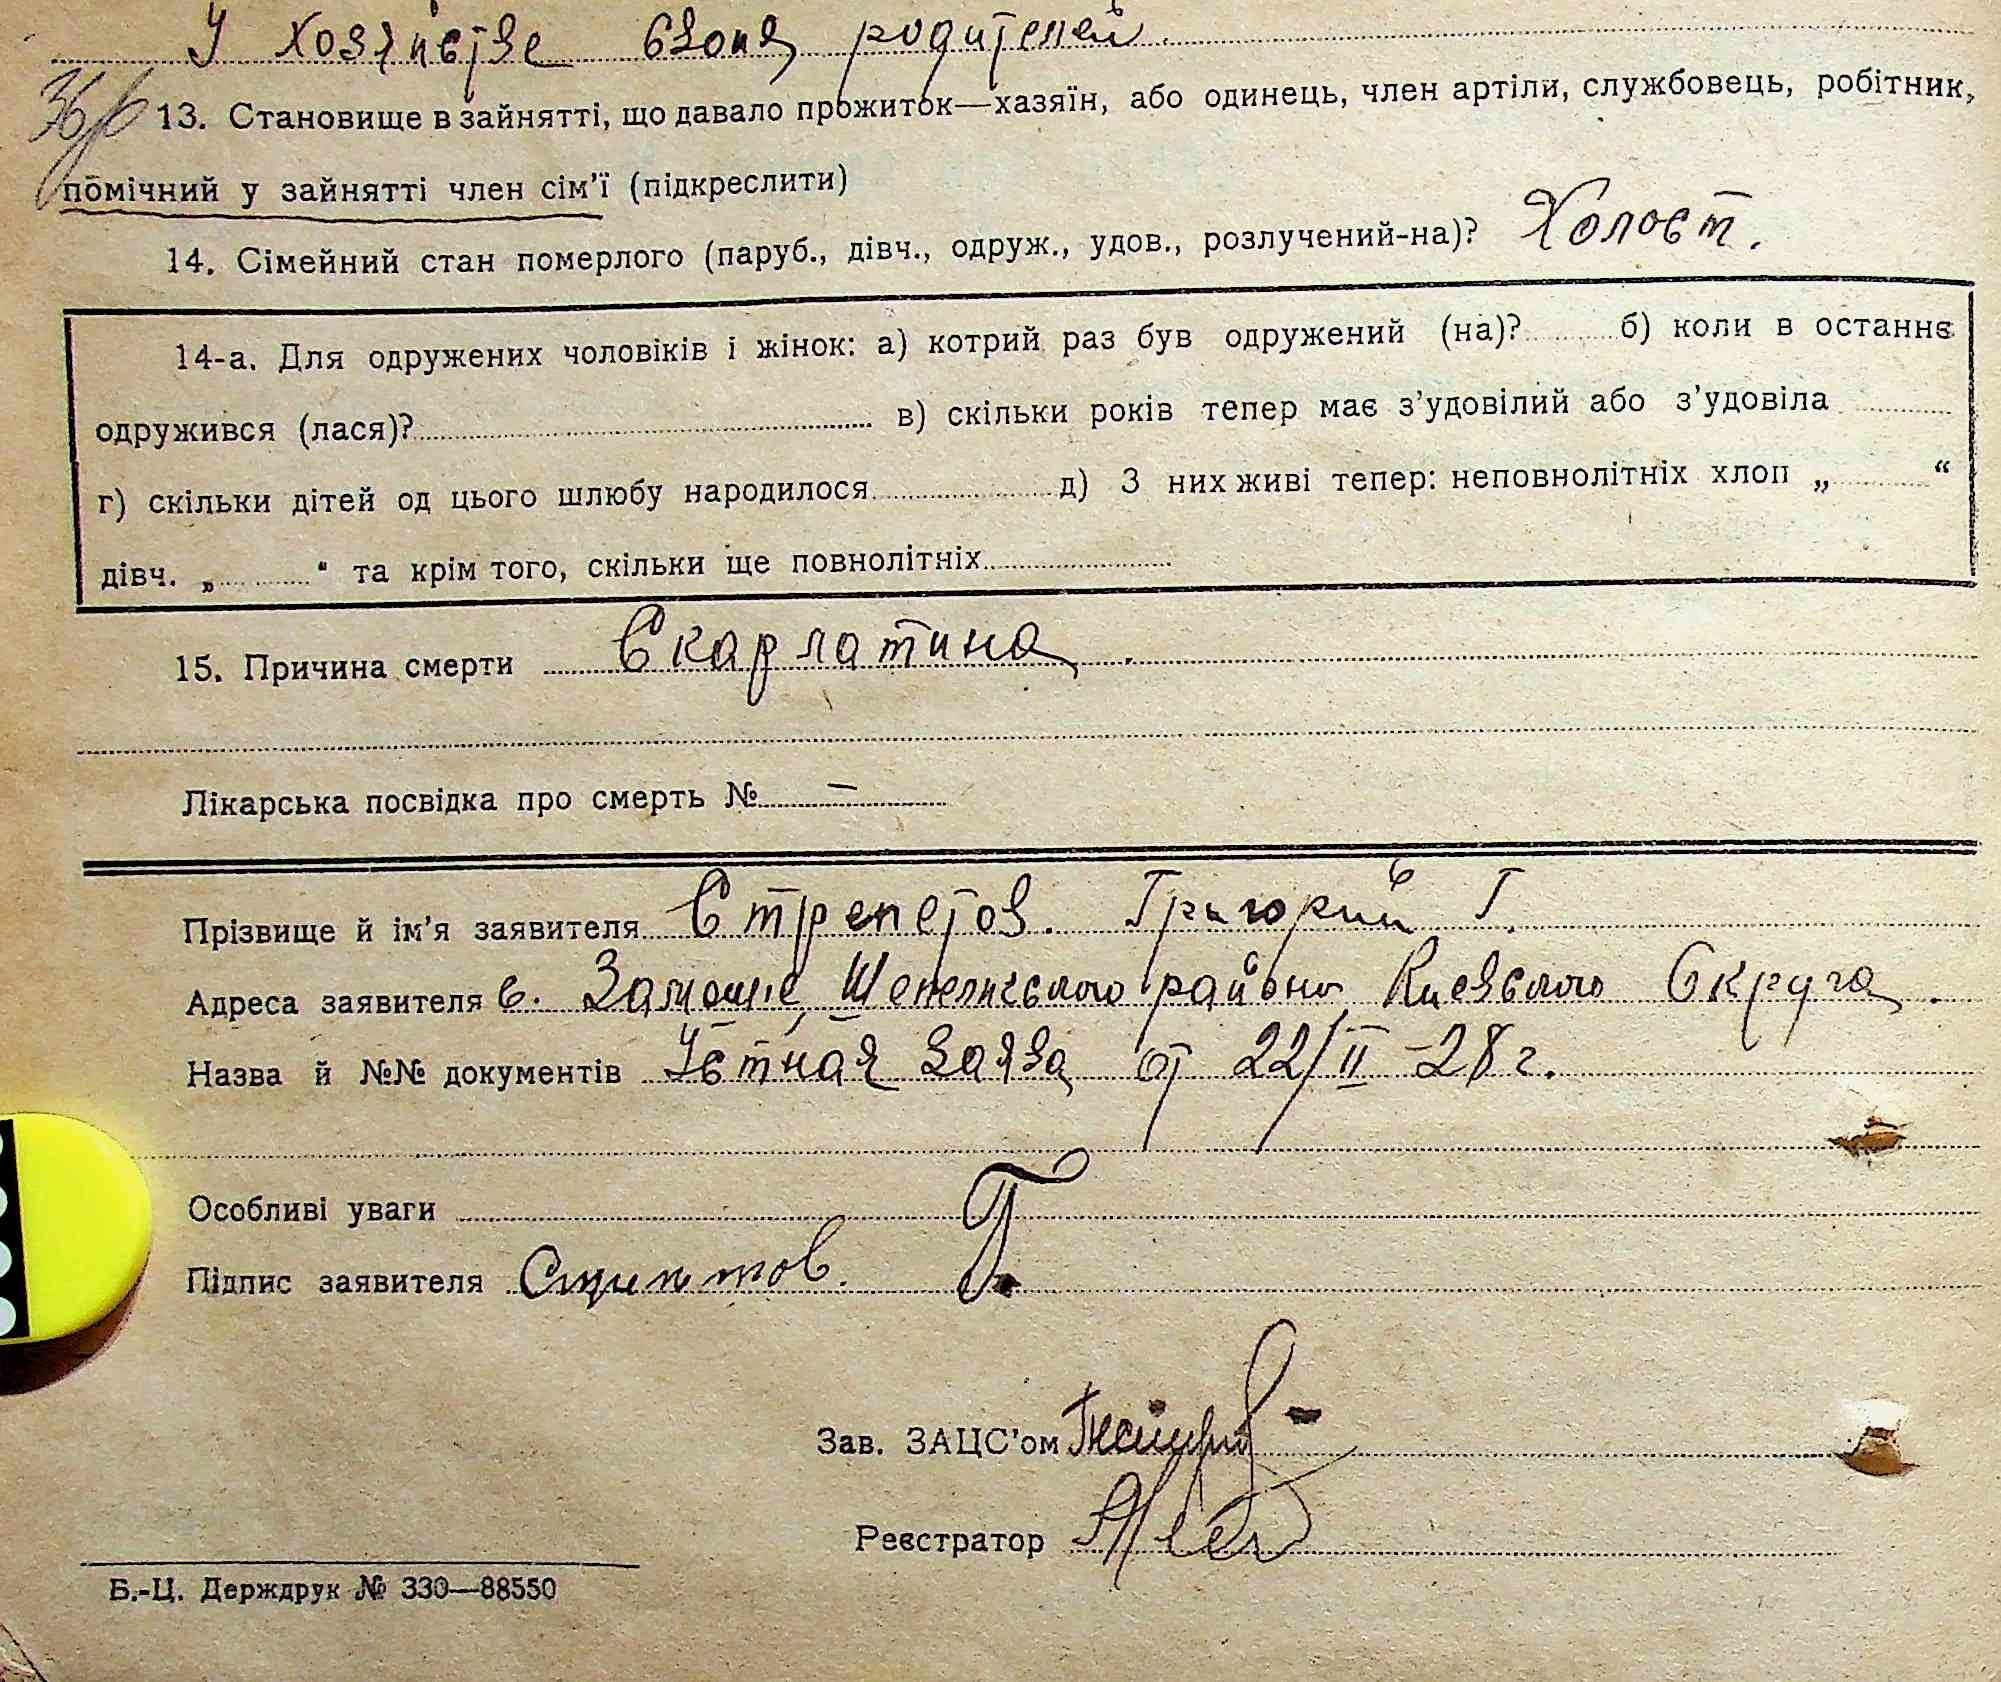 У хозяйстве своих родителей.
13. Становище в зайнятті, що давало прожиток—хазяїн, або одинець, член артіли, службовець, робітник,
помічний у зайнятті член сім'ї (підкреслити)
14. Сімейний стан померлого (паруб., дівч., одруж., удов., розлучений-на)? Холост.
14-а. Для одружених чоловіків і жінок: а) котрий раз був одружений (на)? б) коли в останнє
одружився (лася)? в) скільки років тепер має з'удовілий або з'удовіла
г) скільки дітей од цього шлюбу народилося д) З них живі тепер: неповнолітніх хлоп „ “
дівч. „ “ та крім того, скільки ще повнолітніх
15. Причина смерти Скарлатина.
Лікарська посвідка про смерть № —
Прізвище й ім'я заявителя Стрепетов. Григорий Г.
Адреса заявителя с. Замошне, Шепеличского района Киевского Округа.
Назва й №№ документів Устная Заява от 22/II-28 г.
Особливі уваги
Підпис заявителя Г.
Зав. ЗАЦС'ом
Реєстратор
Б.-Ц. Держдрук № 330—88550